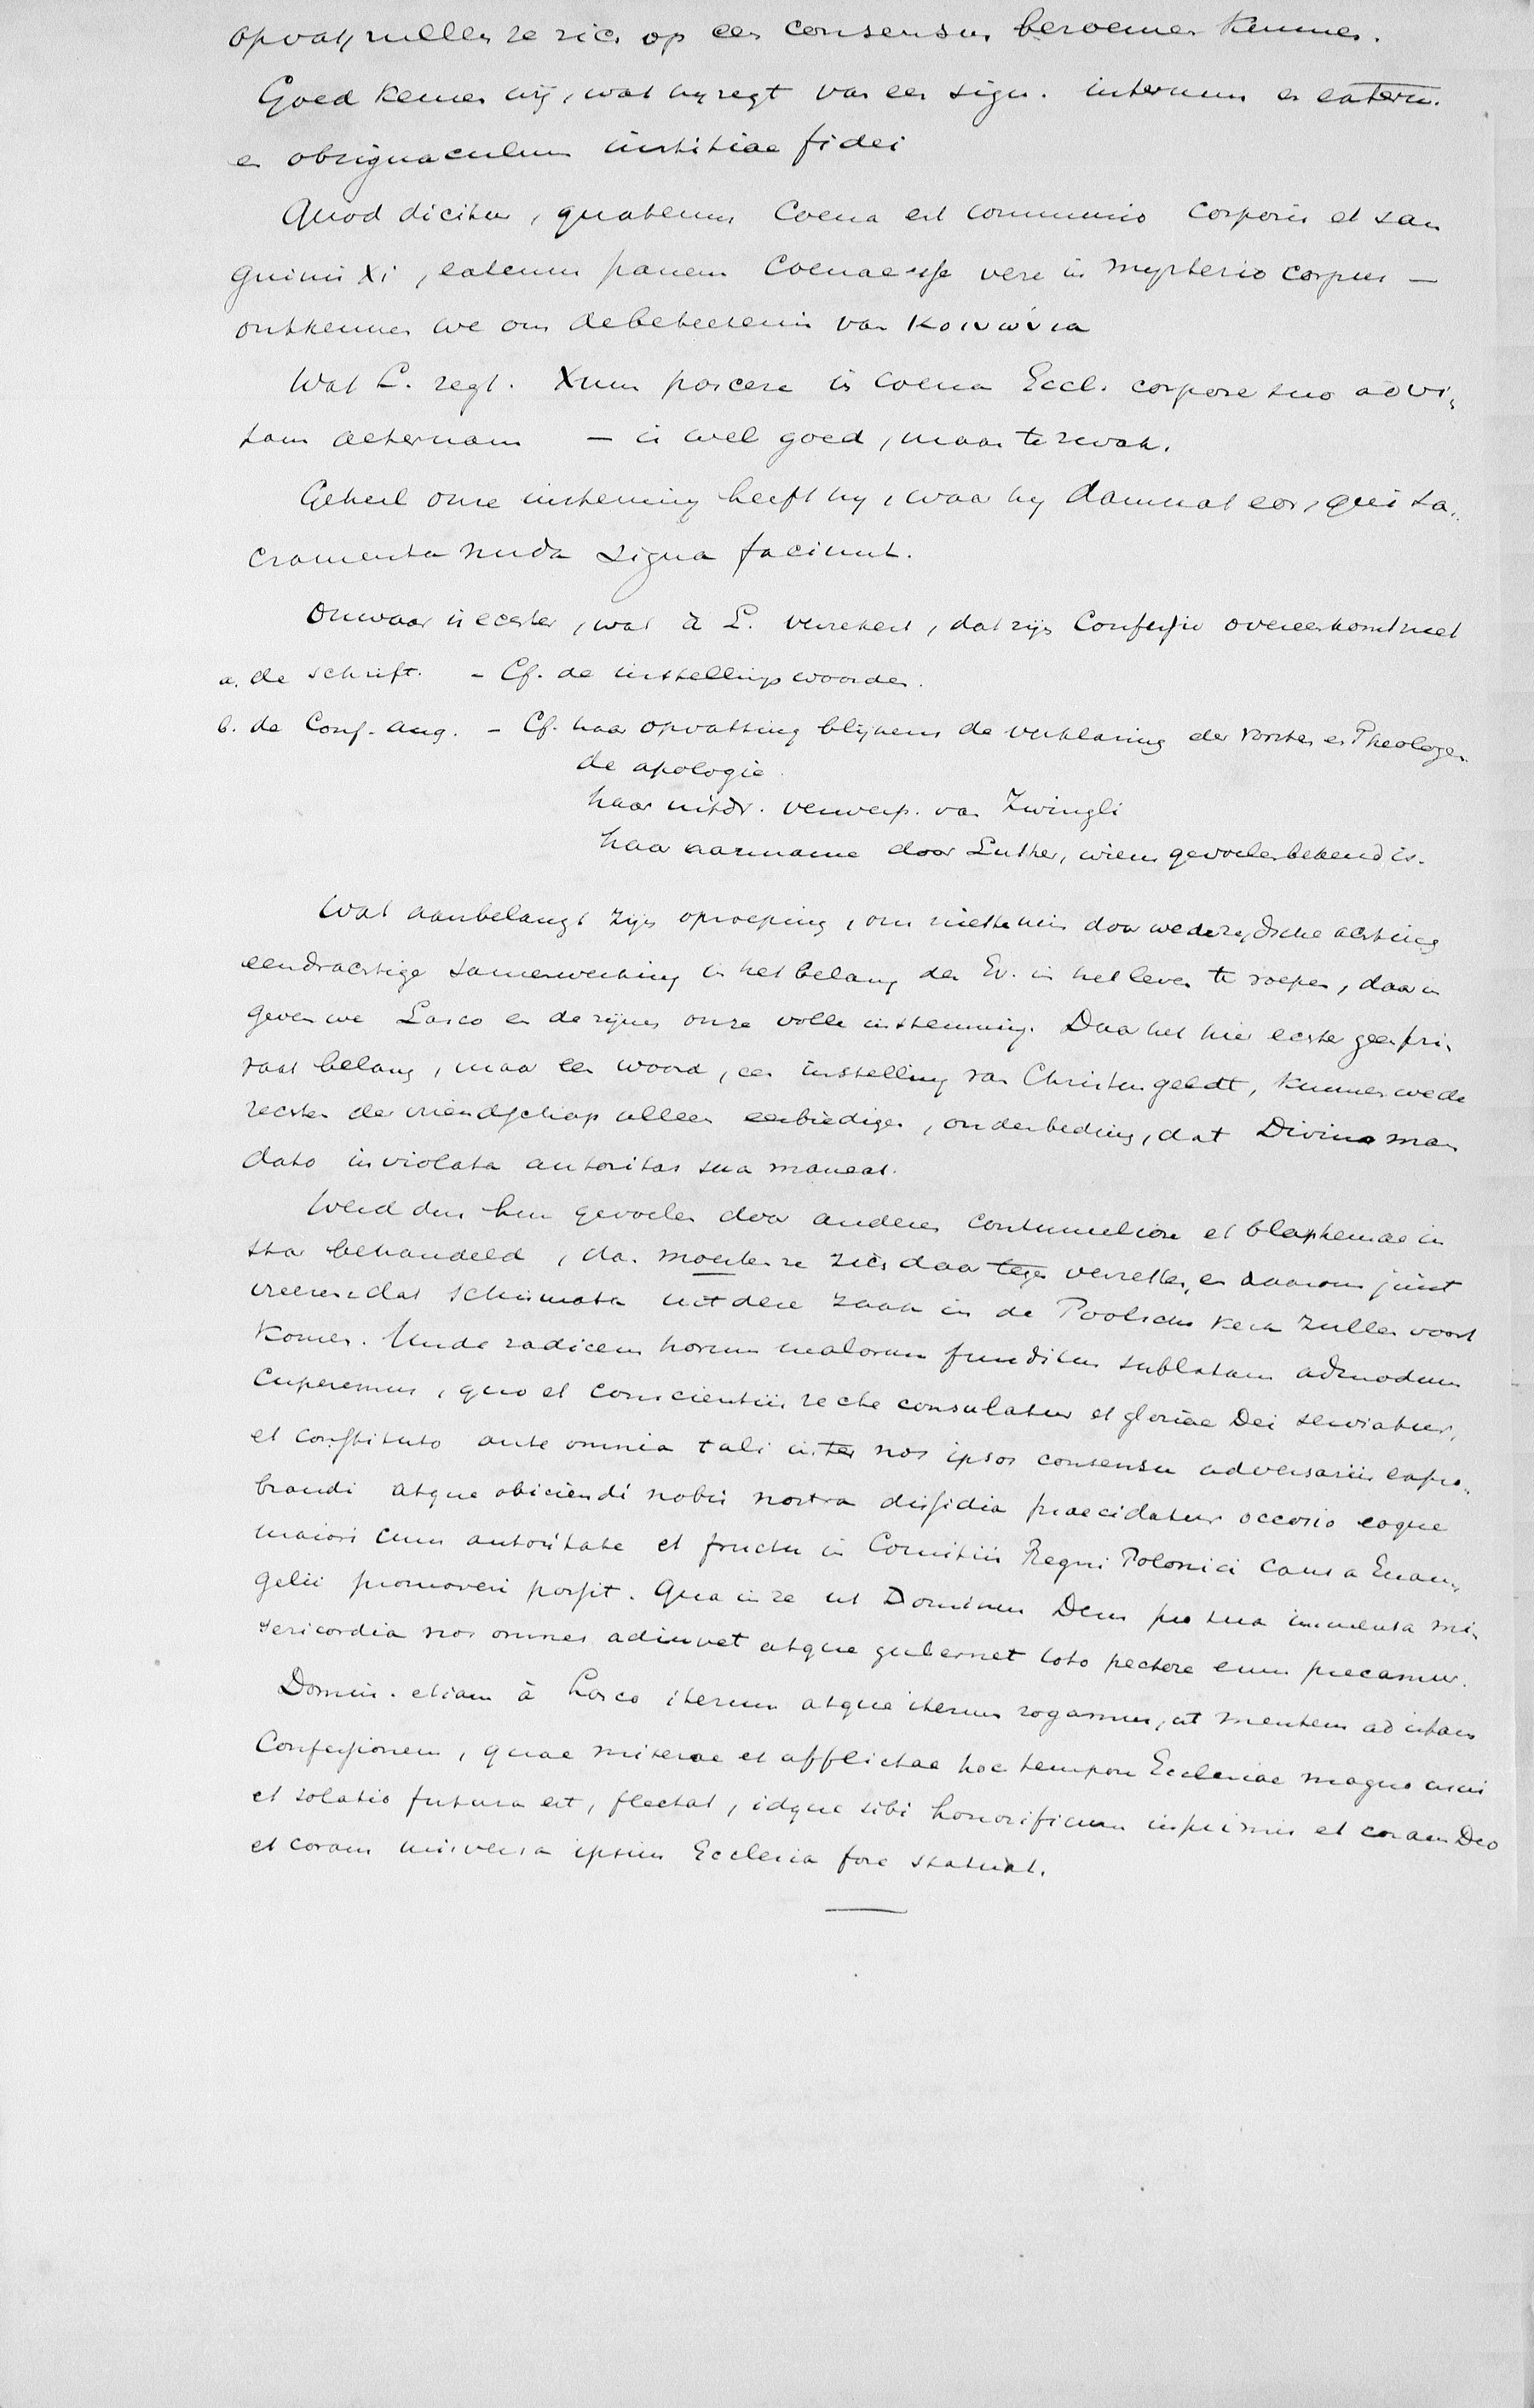 opvatt. zullen ze zich op een consensus beroemen kunnen.
Goed keuren wij, wat hy zegt van een sign. internum en extern.
en obsignaculum iustitiae fidei
Quod dicitur, quatenus Coena est communio corporis et san
guinis Xi, eatenus panem Coenae esse vere in mysterio corpus —
ontkennen we om de beteekenis van κοινωνια
Wat L. zegt. Xum pascere in Coena Eccl. corpore suo ad vi,
tam aeternam — is wel goed, maar te zwak.
Geheel onze instemming heeft hy, waar hy damnat eos, qui sa,
cramenta nuda signa faciunt.
Onwaar is echter, wat à L. verzekert, dat zijn Confessio overeenkomt met
a. de schrift. - Cf. de instellingswoorden.
b. de Conf. Aug. - Cf. haar opvatting blijkens de verklaring der vorsten en Theologen
de apologie.
haar uitdr. verwerp. van Zwingli
haar aanname door Luther, wiens gevoelen bekend is.
Wat aanbelangt zijn oproeping, om niettemin door wederzijdsche achting
eendrachtige samenwerking in het belang der Ev. in het leven te roepen, daarin
geven we Lasco en de zijnen onze volle instemming. Daar het hier echter geen pri,
vaat belang, maar een woord, een instelling van Christus geldt, kunnen we de
rechten der vriendschap alleen eerbiedigen, onder beding, dat Divino man
dato inviolata autoritas sua maneat.
Werd dus hun gevoelen door anderen contumeliose et blaspheme in
behandeld, dan moesten ze zich daar tegen verzetten, en daarom juist
vreezen dat schismata uit deze zaak in de Poolsche kerk zullen voort
komen. Unde radicem horum malorum funditus sublatam admodum
cuperemus, quo et conscientiis recte consulatur et gloriae Dei serviatur,
et constituto ante omnia tali inter nos ipsos consensu adversariis expro,
brandi atque obiiciendi nobis nostra dissidia praecidatur occasio eoque
maiori cum autoritate et fructu in Comitiis Regni Polonici causa Euan,
gelii promoveri possit. Qua in re ut Dominus Deus pro sua immensa mi,
sericordia nos omnes adiuvet atque gubernet toto pectore eum precamur.
Domin. etiam à Lasco iterum atque iterum rogamus, ut mentem ad istam
Confessionem, quae miserae et afflictae hoc tempore Ecclesiae magno usui
et solatio futura est, flectat, idque sibi honorificum inprimis et coram Deo
et coram universa ipsius Ecclesia fore statuat.